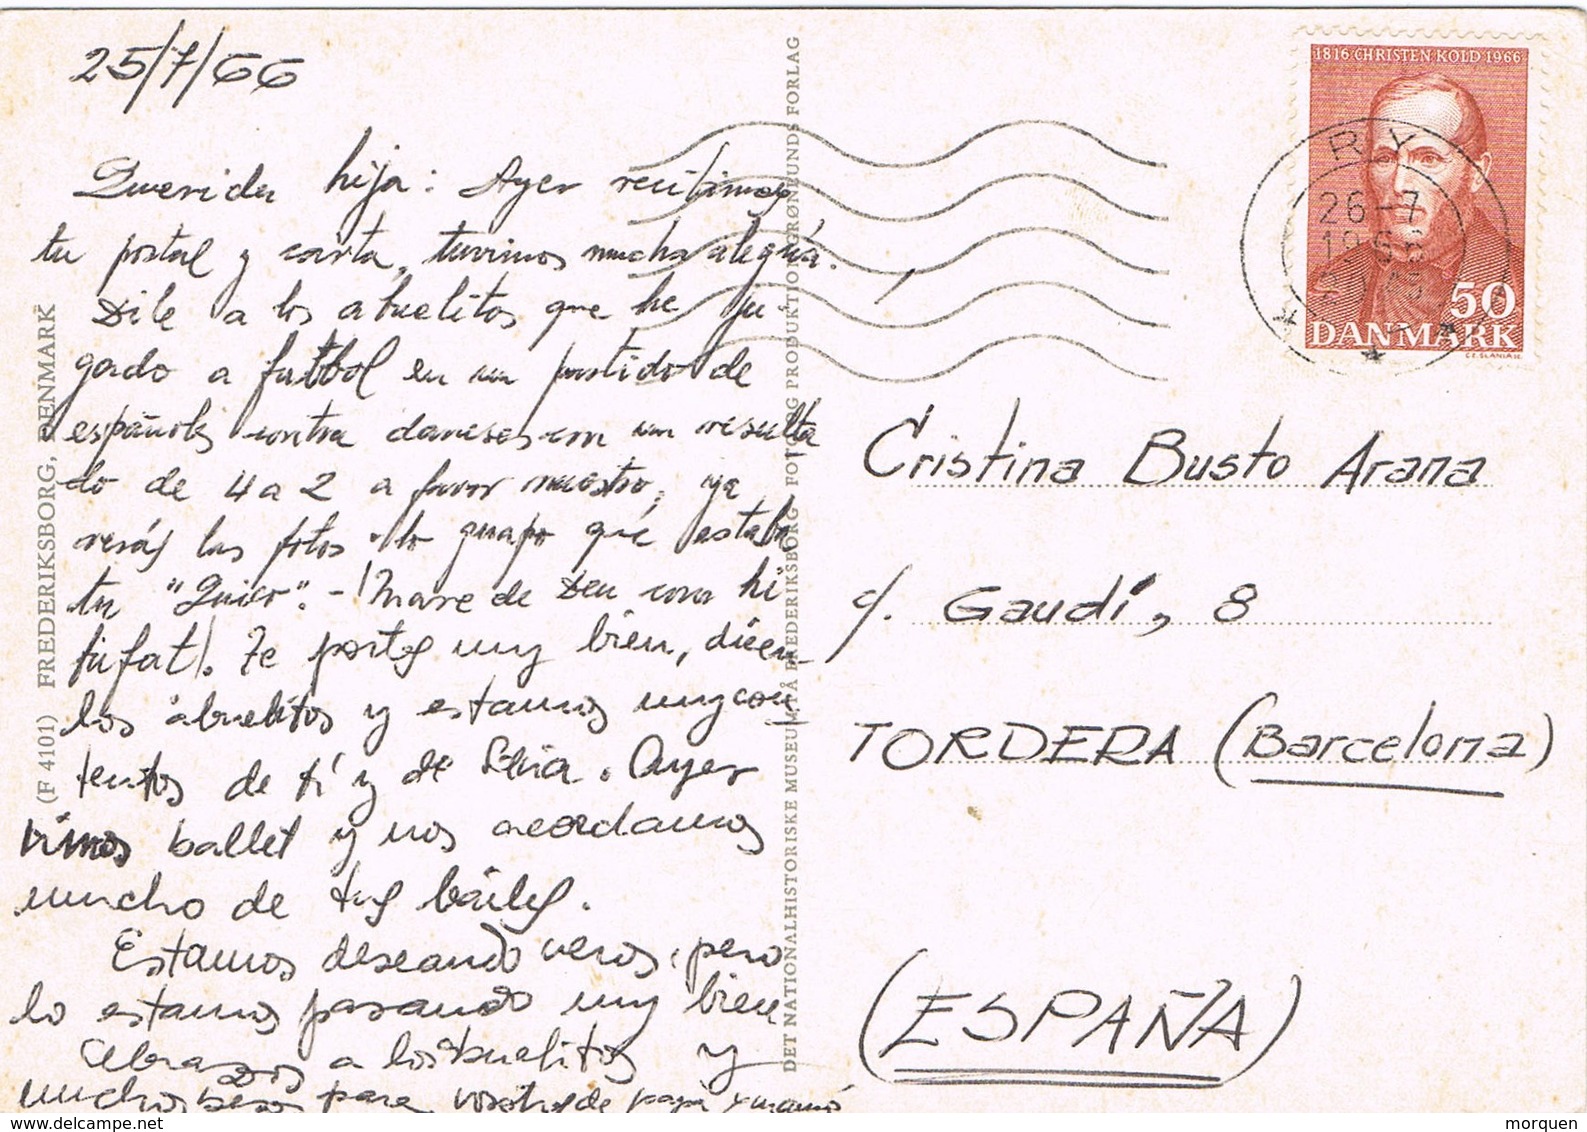 25/7/66
Querida hija: Ayer recibimos
tu postal y carta, tuvimos mucha alegría.
Dile a los abuelitos que he ju
gado a futbol en un partido de
españoles contra daneses con un resulta
do de 4 a 2 a favor nuestro, ya
verás las fotos lo guapo que estaba
tu "Quico".- ¡Mare de Deu com hi
fufat!. Te portas muy bien, dicen
los abuelitos y estamos muy con
tentos de tí y de Silvia. Ayer
vimos ballet y nos acordamos
mucho de tus bailes.
Estamos deseando veros, pero
lo estamos pasando muy bien
Abrazos a los abuelitos y
muchos besos para vosotras de papá y mamá
(F 4101) FREDERIKSBORG, DENMARK
DET NATIONALHISTORISKE MUSEUM PÅ FREDERIKSBORG · FOTO OG PRODUKTION GRØNLUNDS FORLAG
1816 CHRISTEN KOLD 1966
50
DANMARK
CZ. SLANIA SC.
BY
26-7
1966
Cristina Busto Arana
c/. Gaudí, 8
TORDERA (Barcelona)
(ESPAÑA)
delcampe.net
morquen